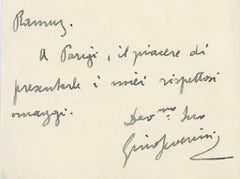 Ramuz.
A Parigi, il piacere di
presentarle i miei rispettosi
omaggi.
Dev.mo Suo
Gino Severini